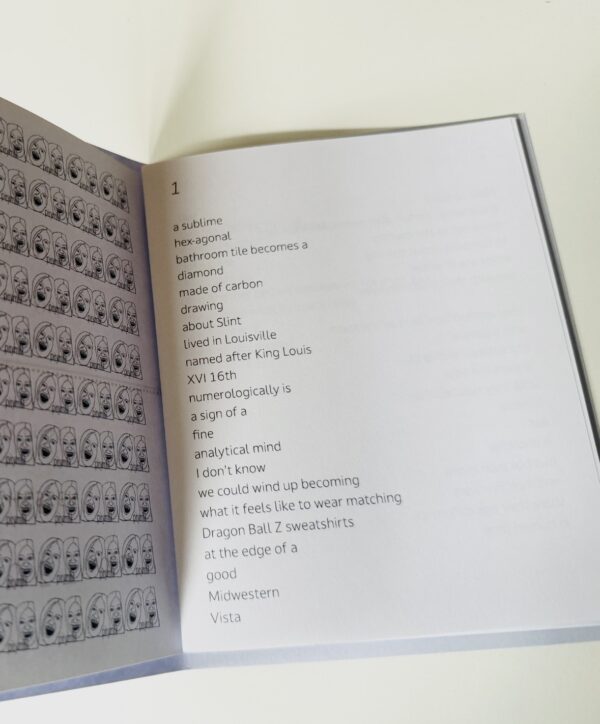 1
a sublime
hex-agonal
bathroom tile becomes a
diamond
made of carbon
drawing
about Slint
lived in Louisville
named after King Louis
XVI 16th
numerologically is
a sign of a
fine
analytical mind
I don't know
we could wind up becoming
what it feels like to wear matching
Dragon Ball Z sweatshirts
at the edge of a
good
Midwestern
Vista